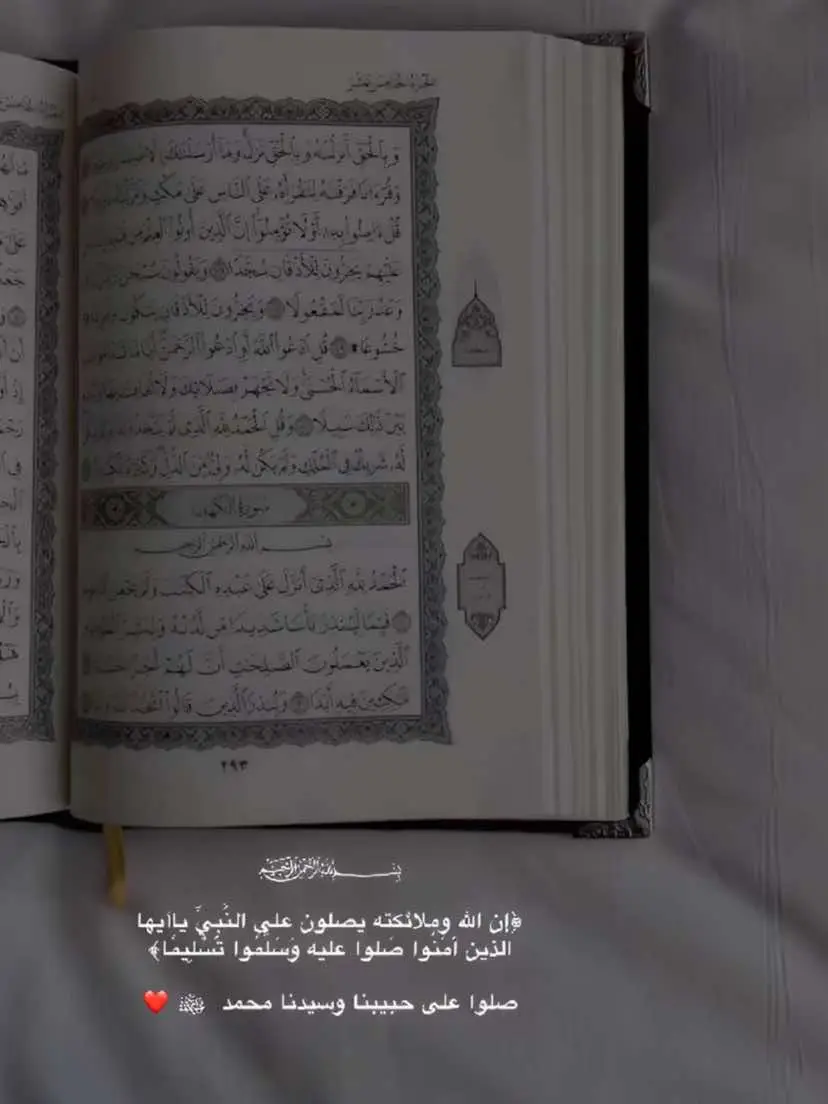 الجزء الخامس عشر
وبالحق أنزلنه وبالحق نزل وما أرسلنك إلا
وقرءانا فرقنه لتقرأه على الناس على مكث ونزلنه
قل ءامنوا به أو لا تؤمنوا إن الذين أوتوا العلم من قبله
عليهم يخرون للأذقان سجدا ويقولون سبحن
وعد ربنا لمفعولا ويخرون للأذقان يبكون
خشوعا قل ادعوا الله أو ادعوا الرحمن أيا ما
الأسماء الحسنى ولا تجهر بصلاتك ولا تخافت بها
بين ذلك سبيلا وقل الحمد لله الذي لم يتخذ
له شريك في الملك ولم يكن له ولي من الذل وكبره تكبيرا
سورة الكهف
بسم الله الرحمن الرحيم
الحمد لله الذي أنزل على عبده الكتب ولم يجعل له
قيما لينذر بأسا شديدا من لدنه ويبشر المؤمنين
الذين يعملون الصلحت أن لهم أجرا حسنا
مكثين فيه أبدا وينذر الذين قالوا اتخذ الله
٢٩٣
بسم الله الرحمن الرحيم
﴿إن الله وملائكته يصلون على النَّبِيِّ ياأيها
الذين آمَنُوا صَلوا عليه وَسَلِّمُوا تَسْلِيمًا﴾
صلوا على حبيبنا وسيدنا محمد ﷺ ❤️